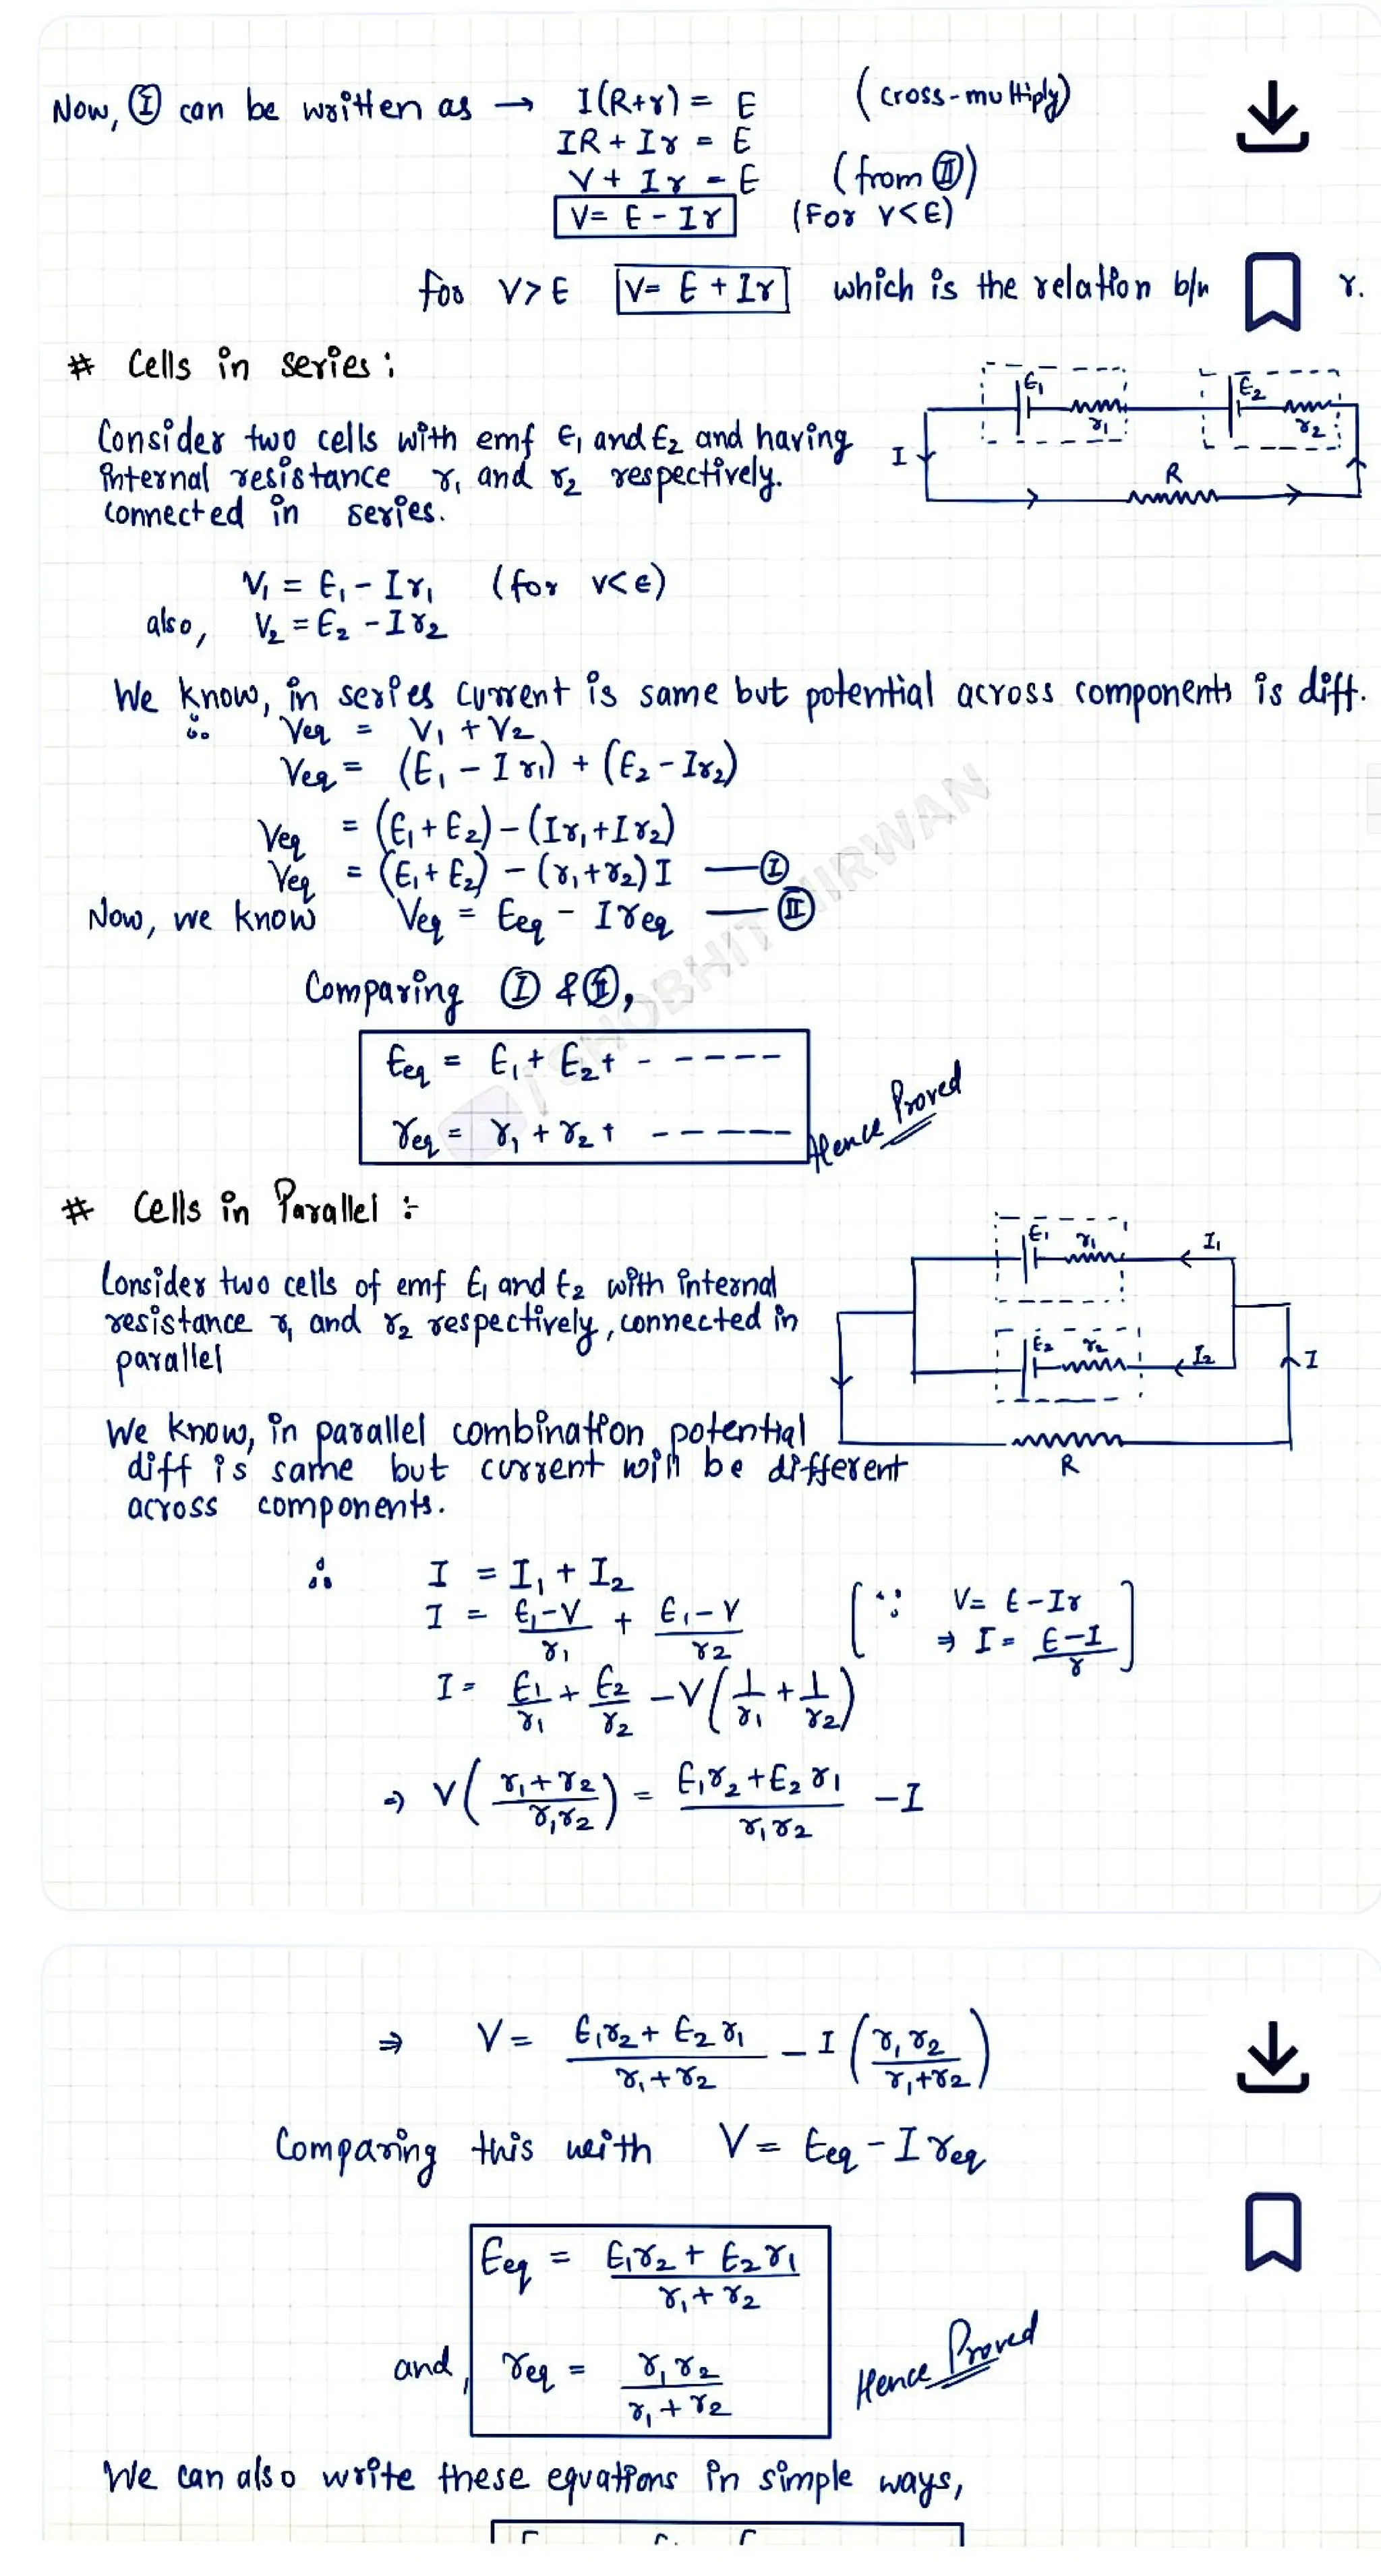 Now, Ⓘ can be written as → I(R+r) = E (cross-multiply)
IR + Ir = E
V + Ir = E (from Ⓘ︎Ⓘ)
V = E - Ir (For V<E)
for V > E V = E + Ir which is the relation b/n r.
# Cells in series :
Consider two cells with emf E₁ and E₂ and having
internal resistance r₁ and r₂ respectively.
connected in series.
E₁ r₁ E₂ r₂
I R
V₁ = E₁ - Ir₁ (for V<E)
also, V₂ = E₂ - Ir₂
We know, in series current is same but potential across components is diff.
∴ Veq = V₁ + V₂
Veq = (E₁ - Ir₁) + (E₂ - Ir₂)
Veq = (E₁ + E₂) - (Ir₁ + Ir₂)
Veq = (E₁ + E₂) - (r₁ + r₂) I — (I)
Now, we know Veq = Eeq - Ireq — (II)
Comparing (I) & (II),
Eeq = E₁ + E₂ + - - - - -
req = r₁ + r₂ + - - - - -
Hence Proved
/ SHOBHIT NIRWAN
# Cells in Parallel :-
Consider two cells of emf E₁ and E₂ with internal
resistance r₁ and r₂ respectively, connected in
parallel
E₁ r₁ I₁
E₂ r₂ I₂
I
R
We know, in parallel combination potential
diff is same but current will be different
across components.
∴ I = I₁ + I₂
I = (E₁-V)/r₁ + (E₁-V)/r₂ [∵ V = E - Ir
⇒ I = (E-I)/r]
I = E₁/r₁ + E₂/r₂ - V(1/r₁ + 1/r₂)
⇒ V((r₁+r₂)/(r₁r₂)) = (E₁r₂ + E₂r₁)/(r₁r₂) - I
⇒ V = (E₁r₂ + E₂r₁)/(r₁+r₂) - I(r₁r₂/(r₁+r₂))
Comparing this with V = Eeq - Ireq
Eeq = (E₁r₂ + E₂r₁)/(r₁+r₂)
and, req = r₁r₂/(r₁+r₂)
Hence Proved
We can also write these equations in simple ways,